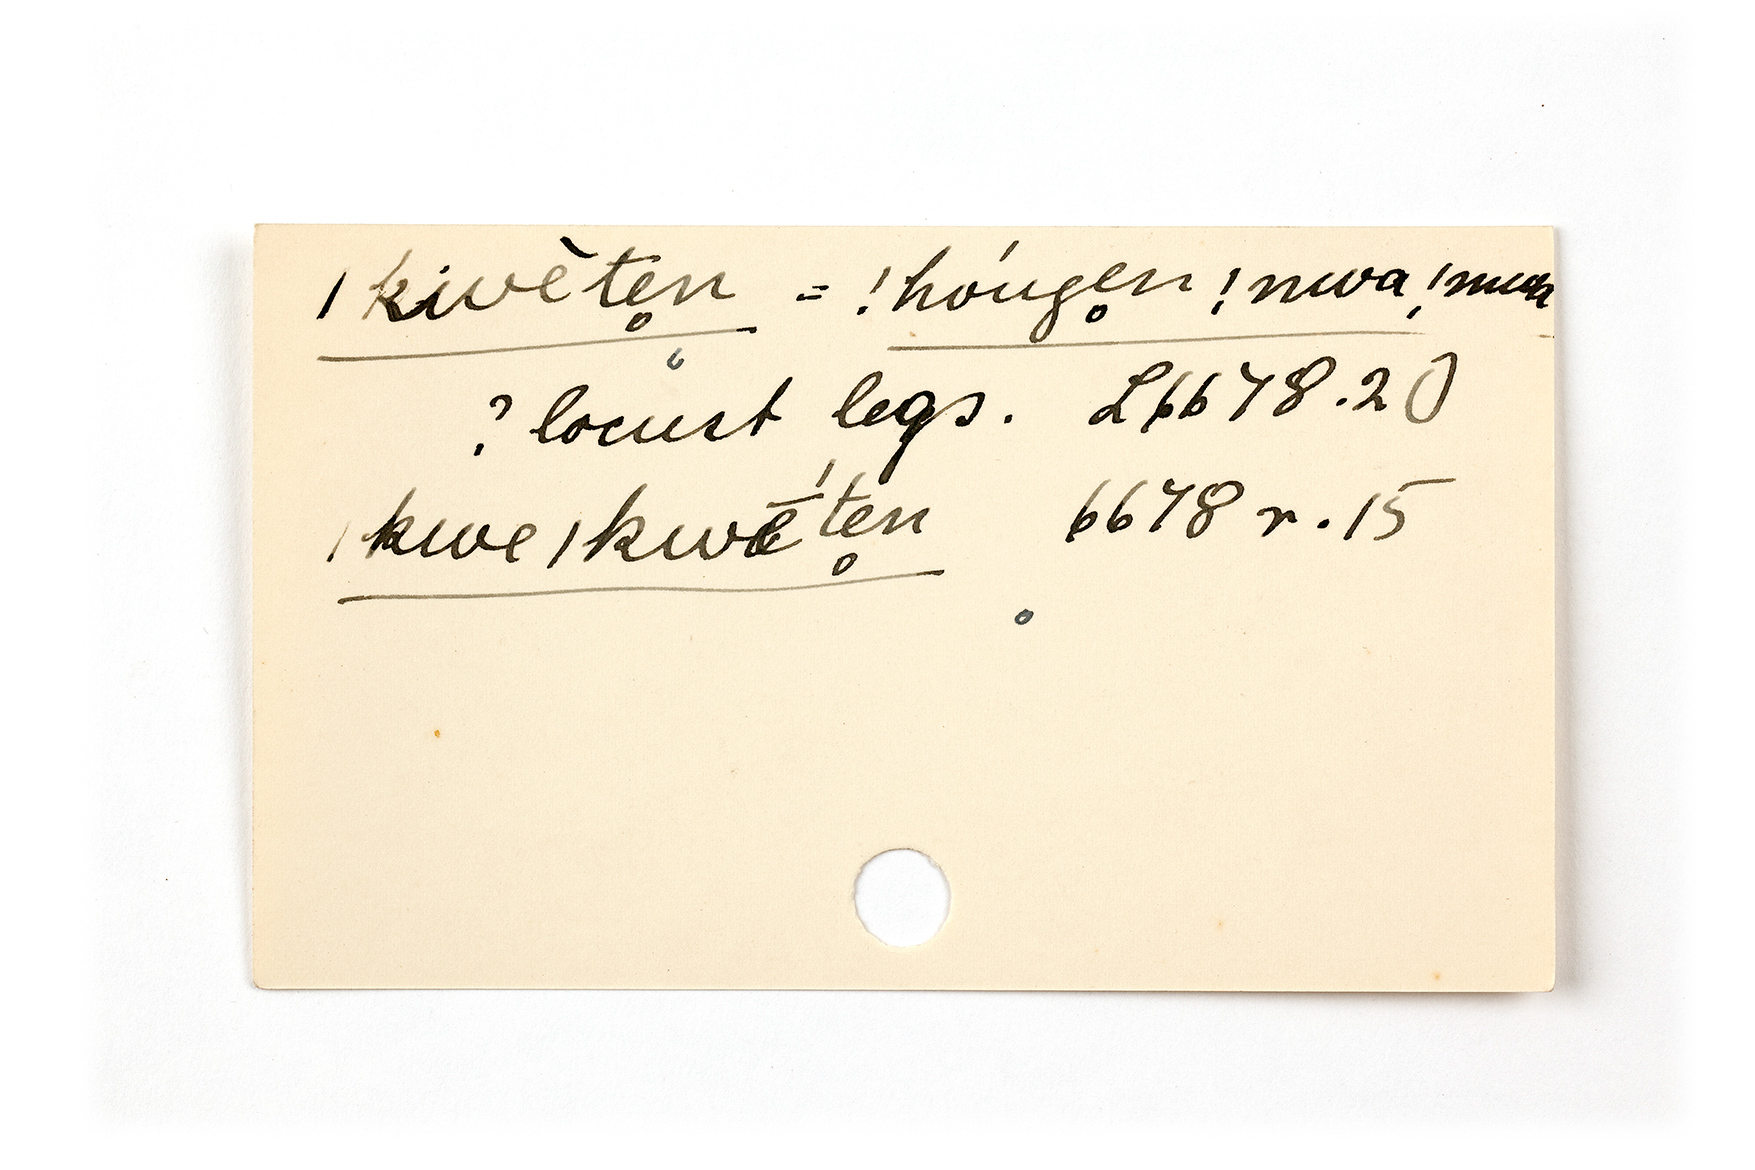 ǀkwètẹn = !hóugẹn !nwa !nwa
? locust legs. L 6678.20
ǀkwe ǀkwē´tẹn 6678 r. 15